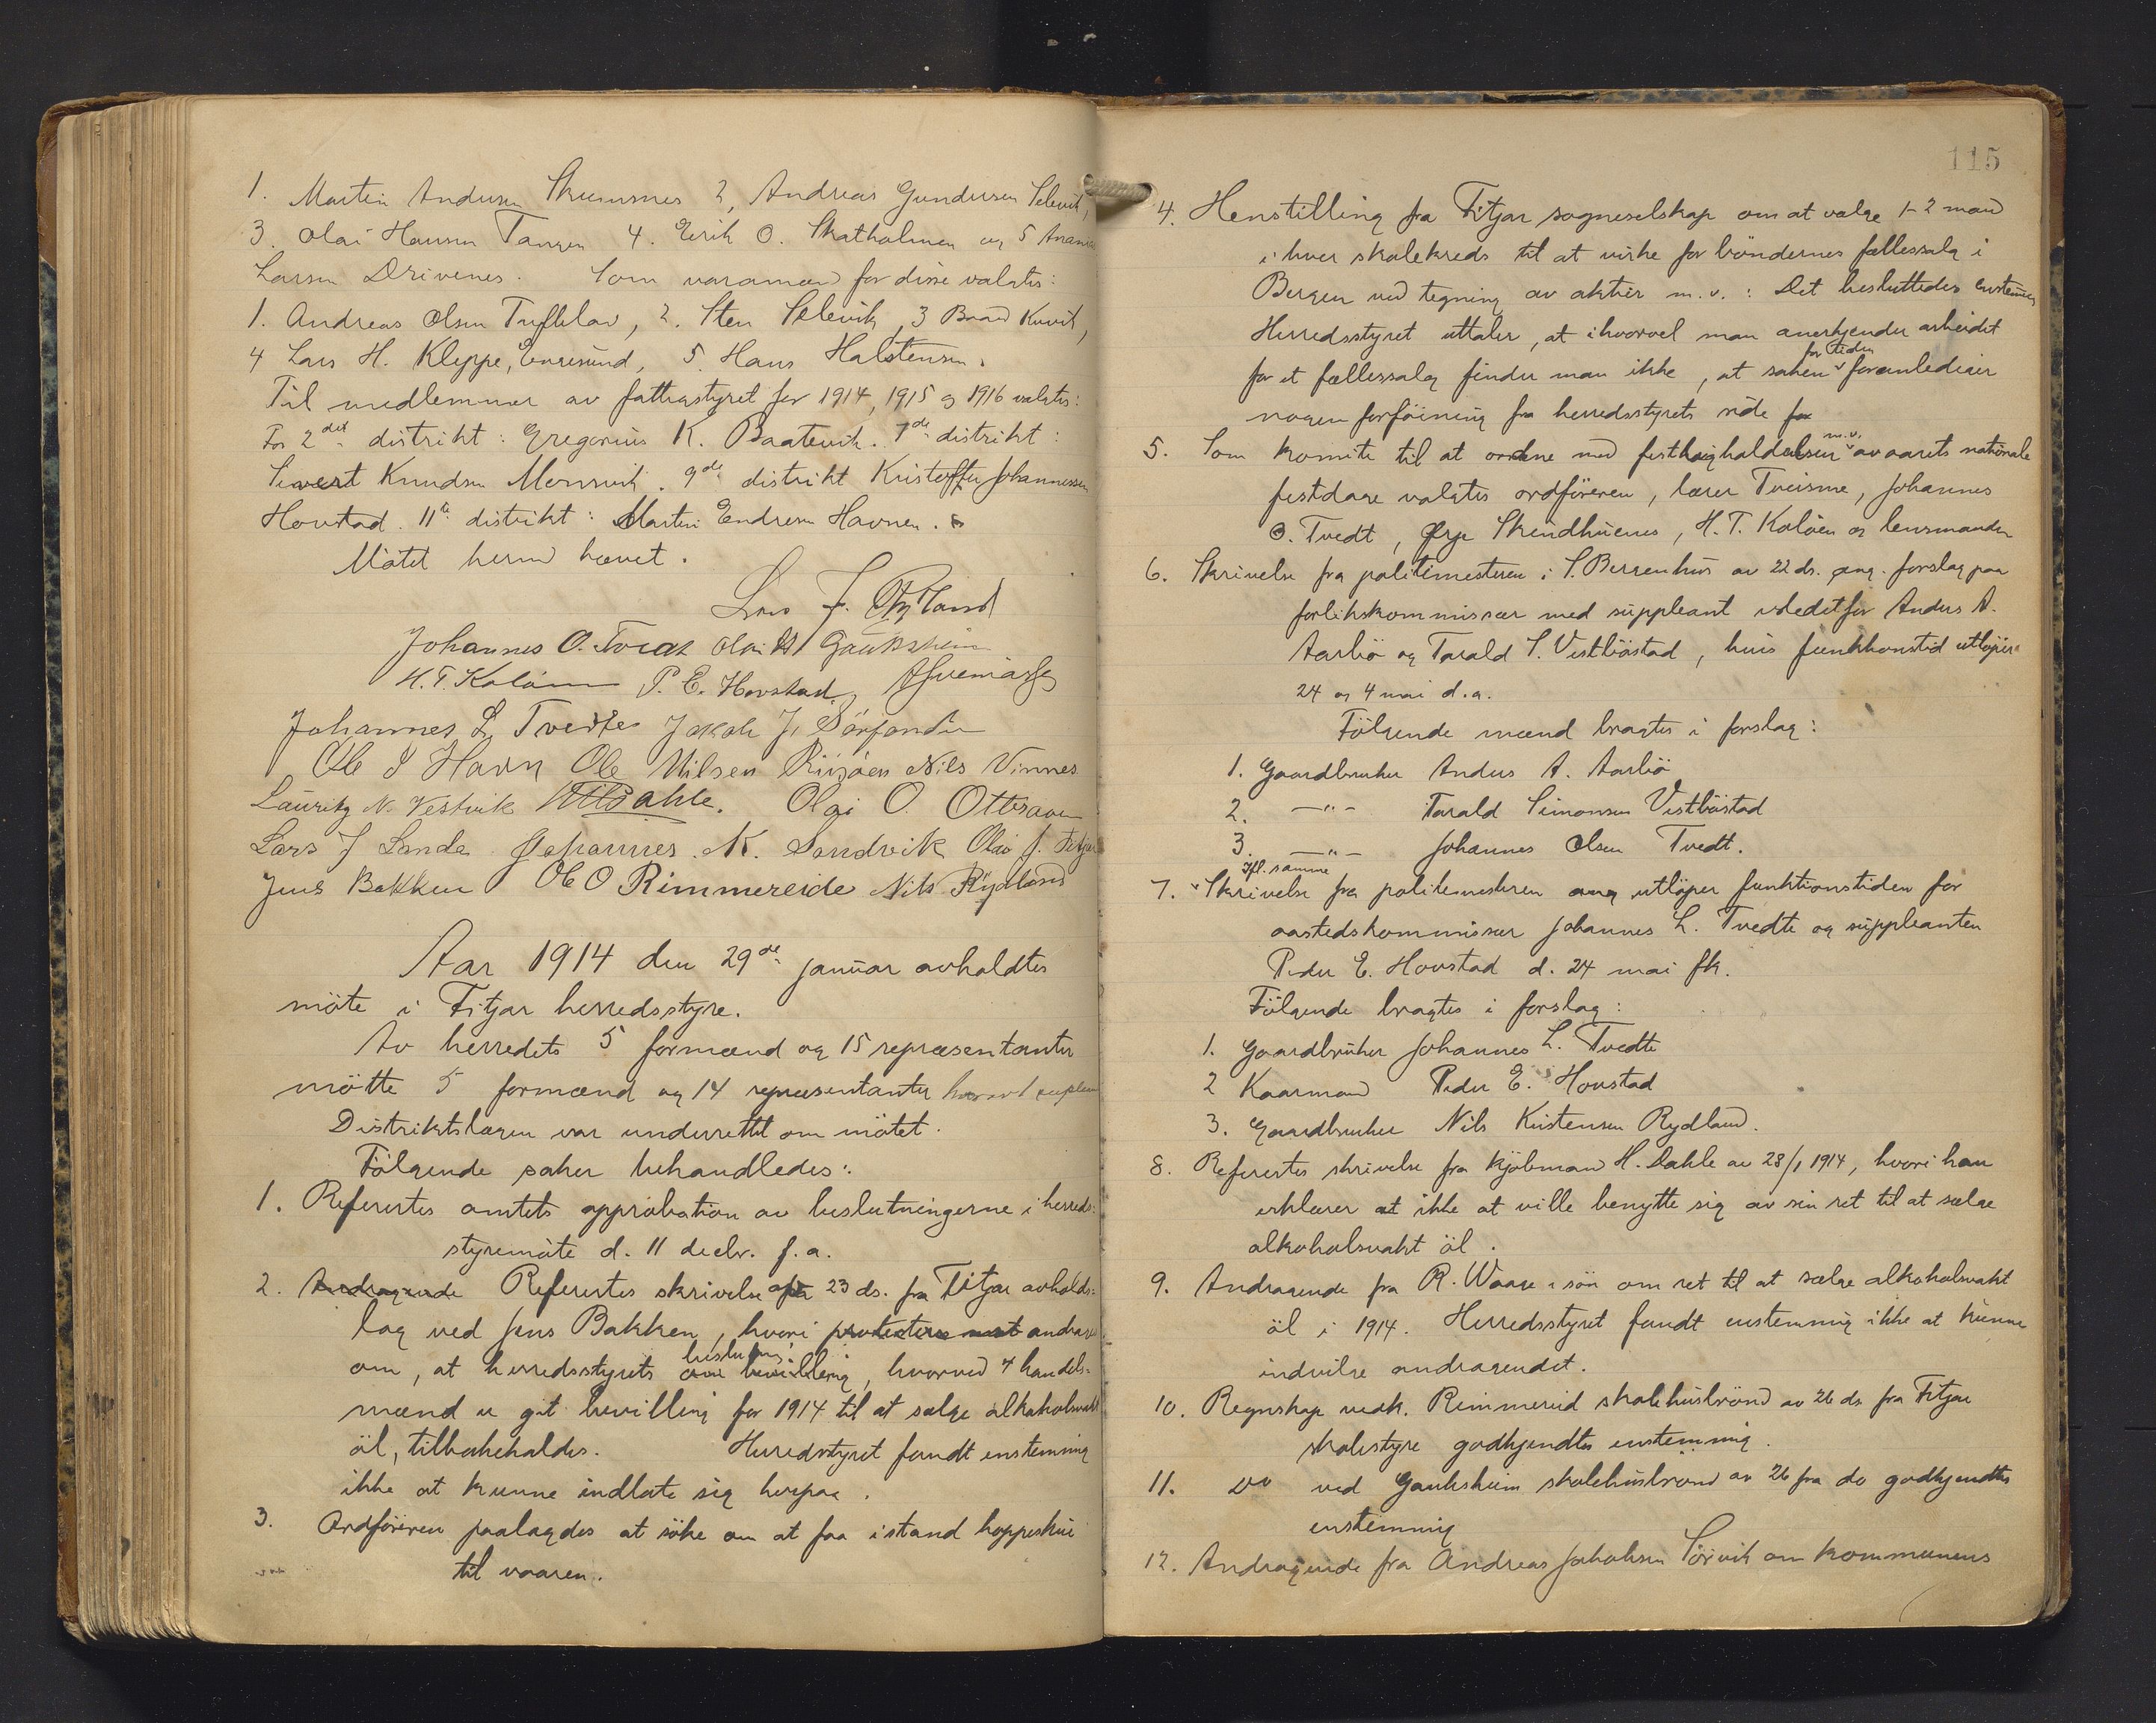 1. Martin Andersen Skumsnes 2, Andreas Gundersen Selevik,
3. Olai Hansen Tangen 4. Eirik O. Skatholmen og 5 Anania
Larsen Drivenes. Som varamænd for disse valgtes:
1. Andreas Olsen Tufteland, 2. Sten Selevik, 3 Baard Kuvik,
4 Lars H. Kleppe, Engesund, 5. Hans Halstensen.
Til medlemmer av fattigstyret for 1914, 1915 og 1916 valgtes:
For 2det distrikt: Gregorius K. Baatevik. 7de distrikt:
Sivert Knudsen Mensvik. 9de distrikt Kristoffer Johannessen
Hovstad. 11te distrikt: Martin Endresen Havnen.
Mötet herved hævet.
Lars J. Rydland
Johannes O. Tvedt Olai H Gauksheim
H. T. Kaløen P. E. Hovstad
Johannes L. Tvedte Jakob J. Sörfonden
Ole J Havn Ole Nilsen Risöen Nils Vinnes
Lauritz N. Vestvik H Dahle. Olai O. Ottesaven
Lars J Sande Johannes K. Sandvik Olav J. Fitjar
Jens Bakken Ole O Rimmereide Nils Rydland
Aar 1914 den 29de januar avholdtes
möte i Fitjar herredsstyre.
Av herredets 5 formænd og 15 repræsentanter
mötte 5 formænd og 14 repræsentanter hvorav 1 suplean
Distriktslægen var underrettet om mötet.
Fölgende saker behandledes:
1. Refertes amtets approbation av beslutningerne i herreds-
styremöte d. 11 decbr. f.a.
2. Andragende Refertes skrivelse av 23 ds. fra Fitjar avholds-
lag ved Jens Bakken, hvori protesteres mot andrages
beslutning
om, at herredsstyrets bevilling, hvorved 4 handels-
mænd er git bevilling for 1914 til at sælge alkoholsvakt
öl, tilbakekaldes. Herredsstyret fandt enstemmig
ikke at kunne indlate sig herpaa.
3. Ordföreren paalagdes at söke om at faa istand hoppeskue
til vaaren.
115
4. Henstilling fra Fitjar sogneselskap om at vælge 1-2 mand
i hver skolekreds til at virke for böndernes fællessalg i
Bergen ved tegning av aktier m.v.: Det besluttedes enstemmig
Herredsstyret uttaler, at ihvorvel man anerkjender arbeidet
for tiden
for et fællessalg finder man ikke, at saken foranlediger
nogen forföining fra herredsstyrets side for
m.v.
5. Som komite til at ordne med festligholdelsen av aarets nationale
festdage valgtes ordföreren, lærer Tveisme, Johannes
O. Tvedt, Ørje Skindhuenes, H. T. Kalöen og lensmanden
6. Skrivelse fra politimesteren i S. Bergenhus av 22 ds. ang. forslag paa
forlikskommissær med suppleant istedetfor Anders A.
Aarbö og Tarald S. Vestböstad, hvis funktionstid utlöper
24 og 4 mai d.a.
Fölgende mænd bragtes i forslag:
1. Gaardbruker Anders A. Aarbö
2. —"— Tarald Simonsen Vestböstad
3. —"— Johannes Olsen Tvedt.
Ifl. samme
7. Skrivelse fra politimesteren ang utlöper funktionstiden for
aastedskommissær Johannes L. Tvedte og suppleanten
Peder E. Hovstad d. 24 mai fk.
Fölgende bragtes i forslag:
1. Gaardbruker Johannes L. Tvedte
2 Kaarmand Peder E. Hovstad
3. Gaardbruker Nils Kristensen Rydland.
8. Refertes skrivelse fra kjöbmand H. Dahle av 28/1 1914, hvori han
erklærer at ikke at ville benytte sig av sin ret til at sælge
alkoholsvakt öl.
9. Andragende fra R. Waage & sön om ret til at sælge alkoholsvakt
öl i 1914. Herredsstyret fandt enstemmig ikke at kunne
indvilge andragendet.
10. Regnskap vedk. Rimmereid skolehusbrönd av 26 ds. fra Fitjar
skolestyre godkjendtes enstemmig.
11. Do ved Gaukheim skolehusbrönd av 26 fra do godkjendtes
enstemmig
12. Andragende fra Andreas Jakobsen Sörvik om kommunens